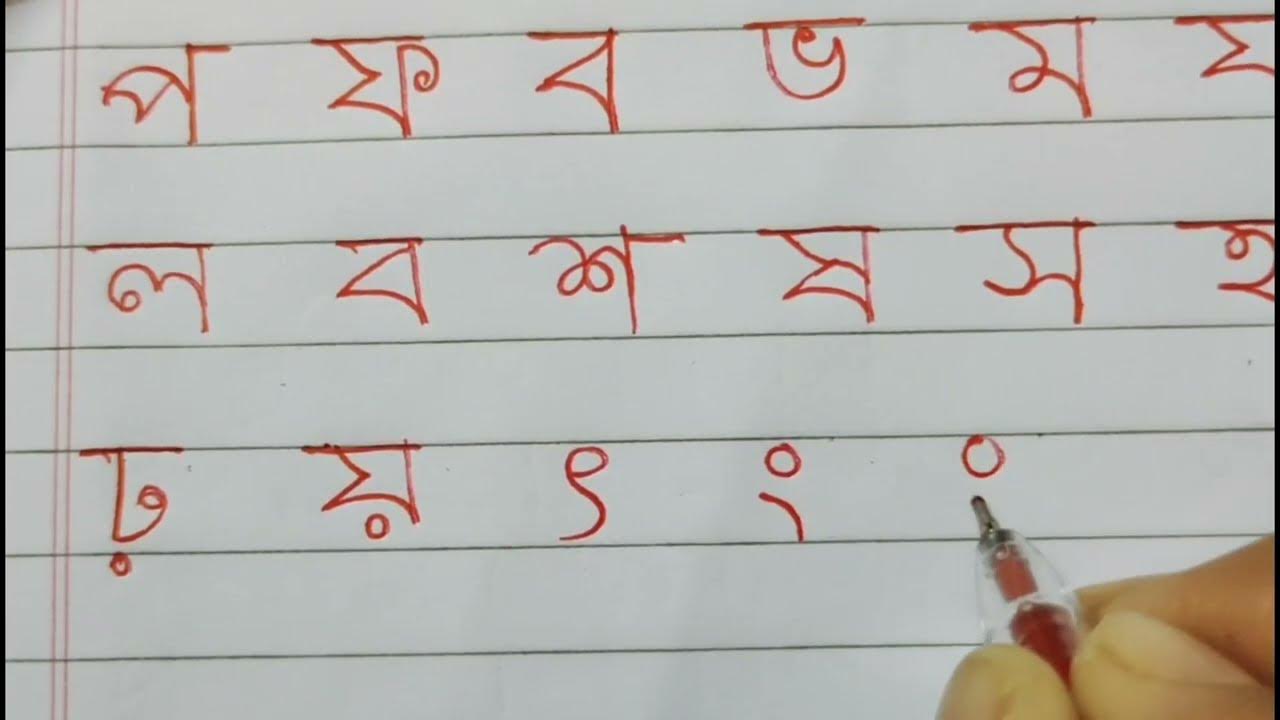 প ফ ব ভ ম য
ল ব শ ষ স হ
ঢ় য় ৎ ং